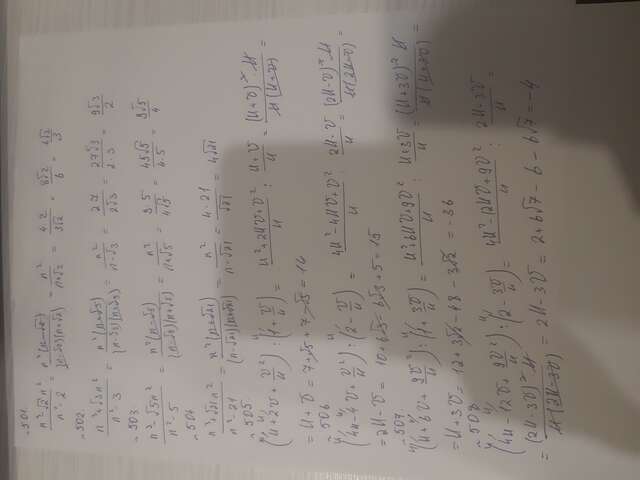 ~501
(n²-√2n²)/(n²-2) = n²(n-√2)/((n-√2)(n+√2)) = n²/(n+√2) = 4·2/(3√2) = 8√2/6 = 4√2/3
~502
(n³+√3n²)/(n²-3) = n²(n+√3)/((n-√3)(n+√3)) = n²/(n-√3) = 27/(2√3) = 27√3/(2·3) = 9√3/2
~503
(n³-√5n²)/(n²-5) = n²(n-√5)/((n-√5)(n+√5)) = n²/(n+√5) = 9·5/(4√5) = 45√5/(4·5) = 9√5/4
~504
(n³+√21n²)/(n²-21) = n²(n+√21)/((n-√21)(n+√21)) = n²/(n-√21) = 4·21/√21 = 4√21
~505
(u+2v+v²/u):(1+v/u) = (u²+2uv+v²)/u : (u+v)/u = (u+v)²u/(u(u+v)) =
= u+v = 7-√5+7+√5 = 14
~506
(4u-4v+v²/u):(2-v/u) = (4u²-4uv+v²)/u : (2u-v)/u = (2u-v)²u/(u(2u-v)) =
= 2u-v = 10+6√3-6√3+5 = 15
~507
(u+6v+9v²/u):(1+3v/u) = (u²+6uv+9v²)/u : (u+3v)/u = (u+3v)²u/(u(u+3v)) =
= u+3v = 12+3√2-48-3√2 = -36
~508
(4u-12v+9v²/u):(2-3v/u) = (4u²-12uv+9v²)/u : (2u-3v)/u =
= (2u-3v)²u/(u(2u-3v)) = 2u-3v = 2+6√7-6-6√7 = -4